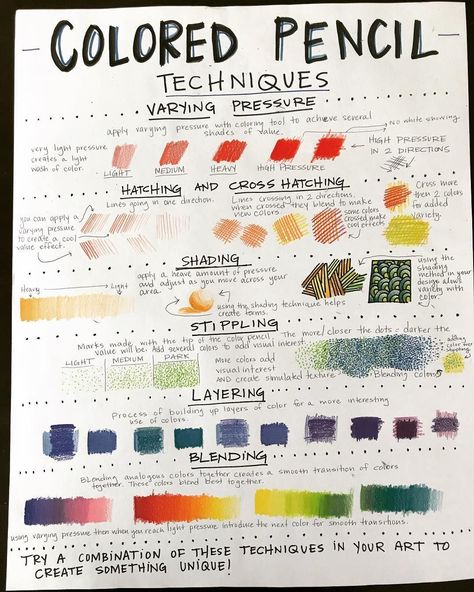 COLORED PENCIL
TECHNIQUES
VARYING PRESSURE
apply varying pressure with coloring tool to achieve several
shades of value.
No white showing
very light pressure
creates a light
wash of color.
LIGHT
MEDIUM
HEAVY
HIGH PRESSURE
HIGH PRESSURE
IN 2 DIRECTIONS
HATCHING AND CROSS HATCHING
Lines going in one direction.
Lines crossing in 2 directions.
when crossed they blend to make
new colors.
Cross more
then 2 colors
for added
variety.
you can apply a
varying pressure
to create a cool
value effect.
some colors
crossed make
cool effects
SHADING
Heavy
Light
apply a heave amount of pressure
and adjust as you move across your
area.
using the shading technique helps
create forms.
using the
shading
method in your
design allows
variety with
color.
STIPPLING
Marks made with the tip of the color pencil. The more/closer the dots = darker the
value will be. Add several colors to add visual interest.
LIGHT
MEDIUM
DARK
More colors add
visual interest
AND create simulated texture
Blending colors
adding
color over
stippling
LAYERING
Process of building up layers of color for a more interesting
use of colors.
BLENDING
Blending analogous colors together creates a smooth transition of colors
together. These colors blend best together.
using varying pressure then when you reach light pressure introduce the next color for smooth transitions.
TRY A COMBINATION OF THESE TECHNIQUES IN YOUR ART TO
CREATE SOMETHING UNIQUE!